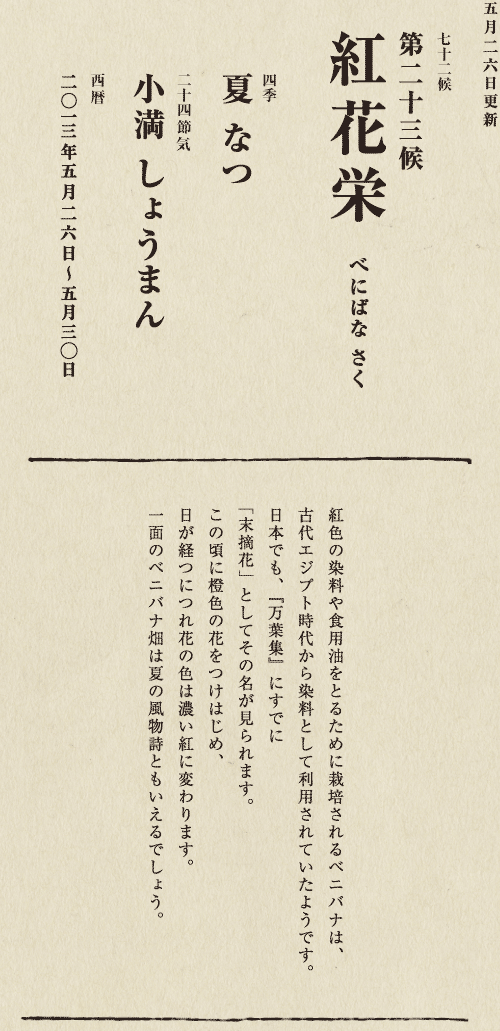 五月二六日更新
七十二候
第二十三候
紅花栄 べにばな さく
四季
夏 なつ
二十四節気
小満 しょうまん
西暦
二〇一三年五月二六日〜五月三〇日
紅色の染料や食用油をとるために栽培されるベニバナは、
古代エジプト時代から染料として利用されていたようです。
日本でも、『万葉集』にすでに
「末摘花」としてその名が見られます。
この頃に橙色の花をつけはじめ、
日が経つにつれ花の色は濃い紅に変わります。
一面のベニバナ畑は夏の風物詩ともいえるでしょう。